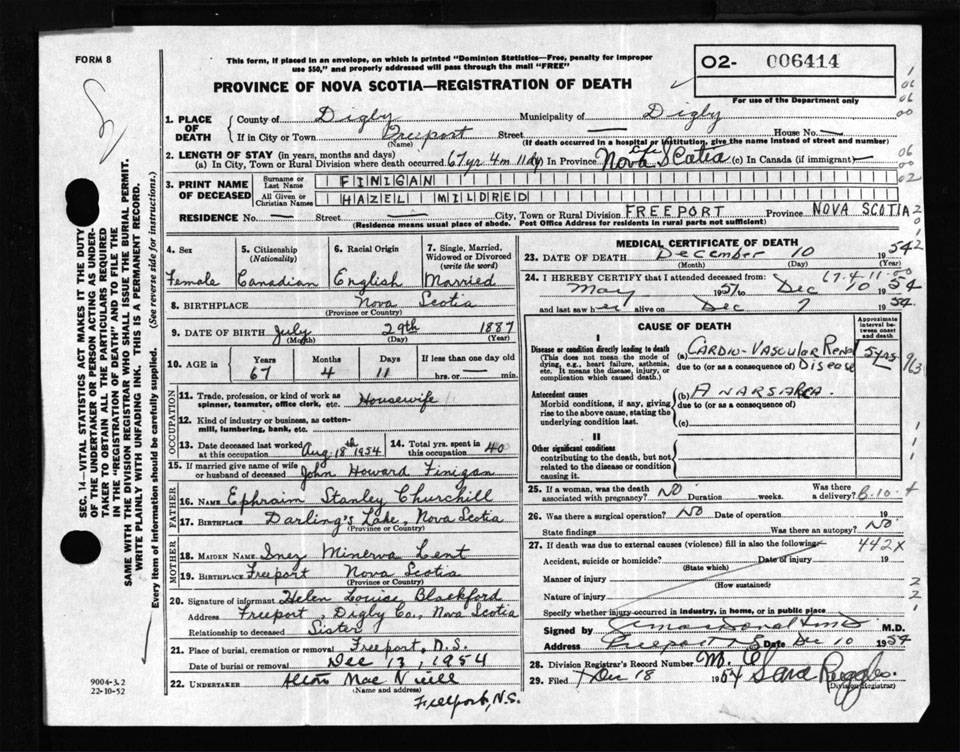 FORM 8
This form, if placed in an envelope, on which is printed "Dominion Statistics—Free, penalty for improper
use $50," and properly addressed will pass through the mail "FREE"
PROVINCE OF NOVA SCOTIA—REGISTRATION OF DEATH
O2- 006414
For use of the Department only
1. PLACE OF DEATH
County of Digby Municipality of Digby
If in City or Town Freeport Street — House No. —
(Name) (If death occurred in a hospital or institution, give the name instead of street and number)
2. LENGTH OF STAY (in years, months and days)
(a) In City, Town or Rural Division where death occurred 67 yr 4 m 11 dy (b) In Province Life Nova Scotia (c) In Canada (if immigrant) —
3. PRINT NAME OF DECEASED
Surname or Last Name FINIGAN
All Given or Christian Names HAZEL MILDRED
RESIDENCE No. — Street — City, Town or Rural Division FREEPORT Province NOVA SCOTIA
(Residence means usual place of abode. Post Office Address for residents in rural parts not sufficient)
4. Sex Female
5. Citizenship (Nationality) Canadian
6. Racial Origin English
7. Single, Married, Widowed or Divorced (write the word) Married
8. BIRTHPLACE Nova Scotia
(Province or Country)
9. DATE OF BIRTH July 29th 1887
(Month) (Day) (Year)
10. AGE in Years 67 Months 4 Days 11 If less than one day old hrs. or — min.
OCCUPATION
11. Trade, profession, or kind of work as spinner, teamster, office clerk, etc. Housewife
12. Kind of industry or business, as cotton-mill, lumbering, bank, etc.
13. Date deceased last worked at this occupation Aug. 18th 1954
14. Total yrs. spent in this occupation 40
15. If married give name of wife or husband of deceased John Howard Finigan
FATHER
16. NAME Ephraim Stanley Churchill
17. BIRTHPLACE Darling's Lake, Nova Scotia
(Province or Country)
MOTHER
18. MAIDEN NAME Inez Minerva Lent
19. BIRTHPLACE Freeport Nova Scotia
(Province or Country)
20. Signature of informant Helen Louise Blackford
Address Freeport, Digby Co., Nova Scotia
Relationship to deceased Sister
21. Place of burial, cremation or removal Freeport, N.S.
Date of burial or removal Dec 13, 1954
22. UNDERTAKER Mac Neill
(Name and address)
Freeport, N.S.
MEDICAL CERTIFICATE OF DEATH
23. DATE OF DEATH December 10 1954
(Month) (Day)
67-4-11
24. I HEREBY CERTIFY that I attended deceased from:
May 1951 to Dec 10 1954
and last saw her alive on Dec 7 1954.
CAUSE OF DEATH
Approximate interval between onset and death
I
Disease or condition directly leading to death
(This does not mean the mode of dying, e.g., heart failure, asthenia, etc. It means the disease, injury, or complication which caused death.)
(a) CARDIO-VASCULAR RENAL DISEASE 5 yrs
due to (or as a consequence of)
Antecedent causes
Morbid conditions, if any, giving rise to the above cause, stating the underlying condition last.
(b) ANARSARCA.
due to (or as a consequence of)
(c)
II
Other significant conditions
contributing to the death, but not related to the disease or condition causing it.
25. If a woman, was the death associated with pregnancy? NO Duration weeks. Was there a delivery?
26. Was there a surgical operation? NO Date of operation 19
State findings Was there an autopsy? NO
27. If death was due to external causes (violence) fill in also the following: 442X
Accident, suicide or homicide? Date of injury 19
(State which)
Manner of injury
(How sustained)
Nature of injury
Specify whether injury occurred in industry, in home, or in public place
Signed by M.D.
Address Freeport N S Date Dec 10 1954
28. Division Registrar's Record Number
29. Filed Dec 18 1954 Sara Ruggles.
(Division Registrar)
SEC. 14—VITAL STATISTICS ACT MAKES IT THE DUTY
OF THE UNDERTAKER OR PERSON ACTING AS UNDER-
TAKER TO OBTAIN ALL THE PARTICULARS REQUIRED
IN THE "REGISTRATION OF DEATH" AND TO FILE THE
SAME WITH THE DIVISION REGISTRAR WHO SHALL ISSUE THE BURIAL PERMIT.
WRITE PLAINLY WITH UNFADING INK. THIS IS A PERMANENT RECORD.
Every item of information should be carefully supplied. (See reverse side for instructions.)
9004-3.2
22-10-52